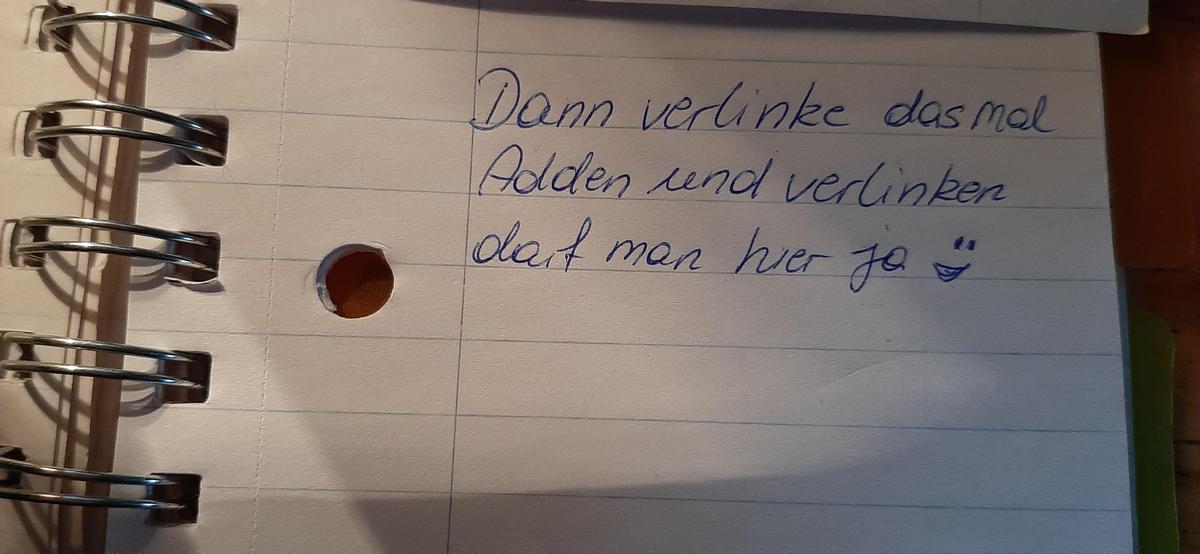 Dann verlinke das mal
Adden und verlinken
darf man hier ja